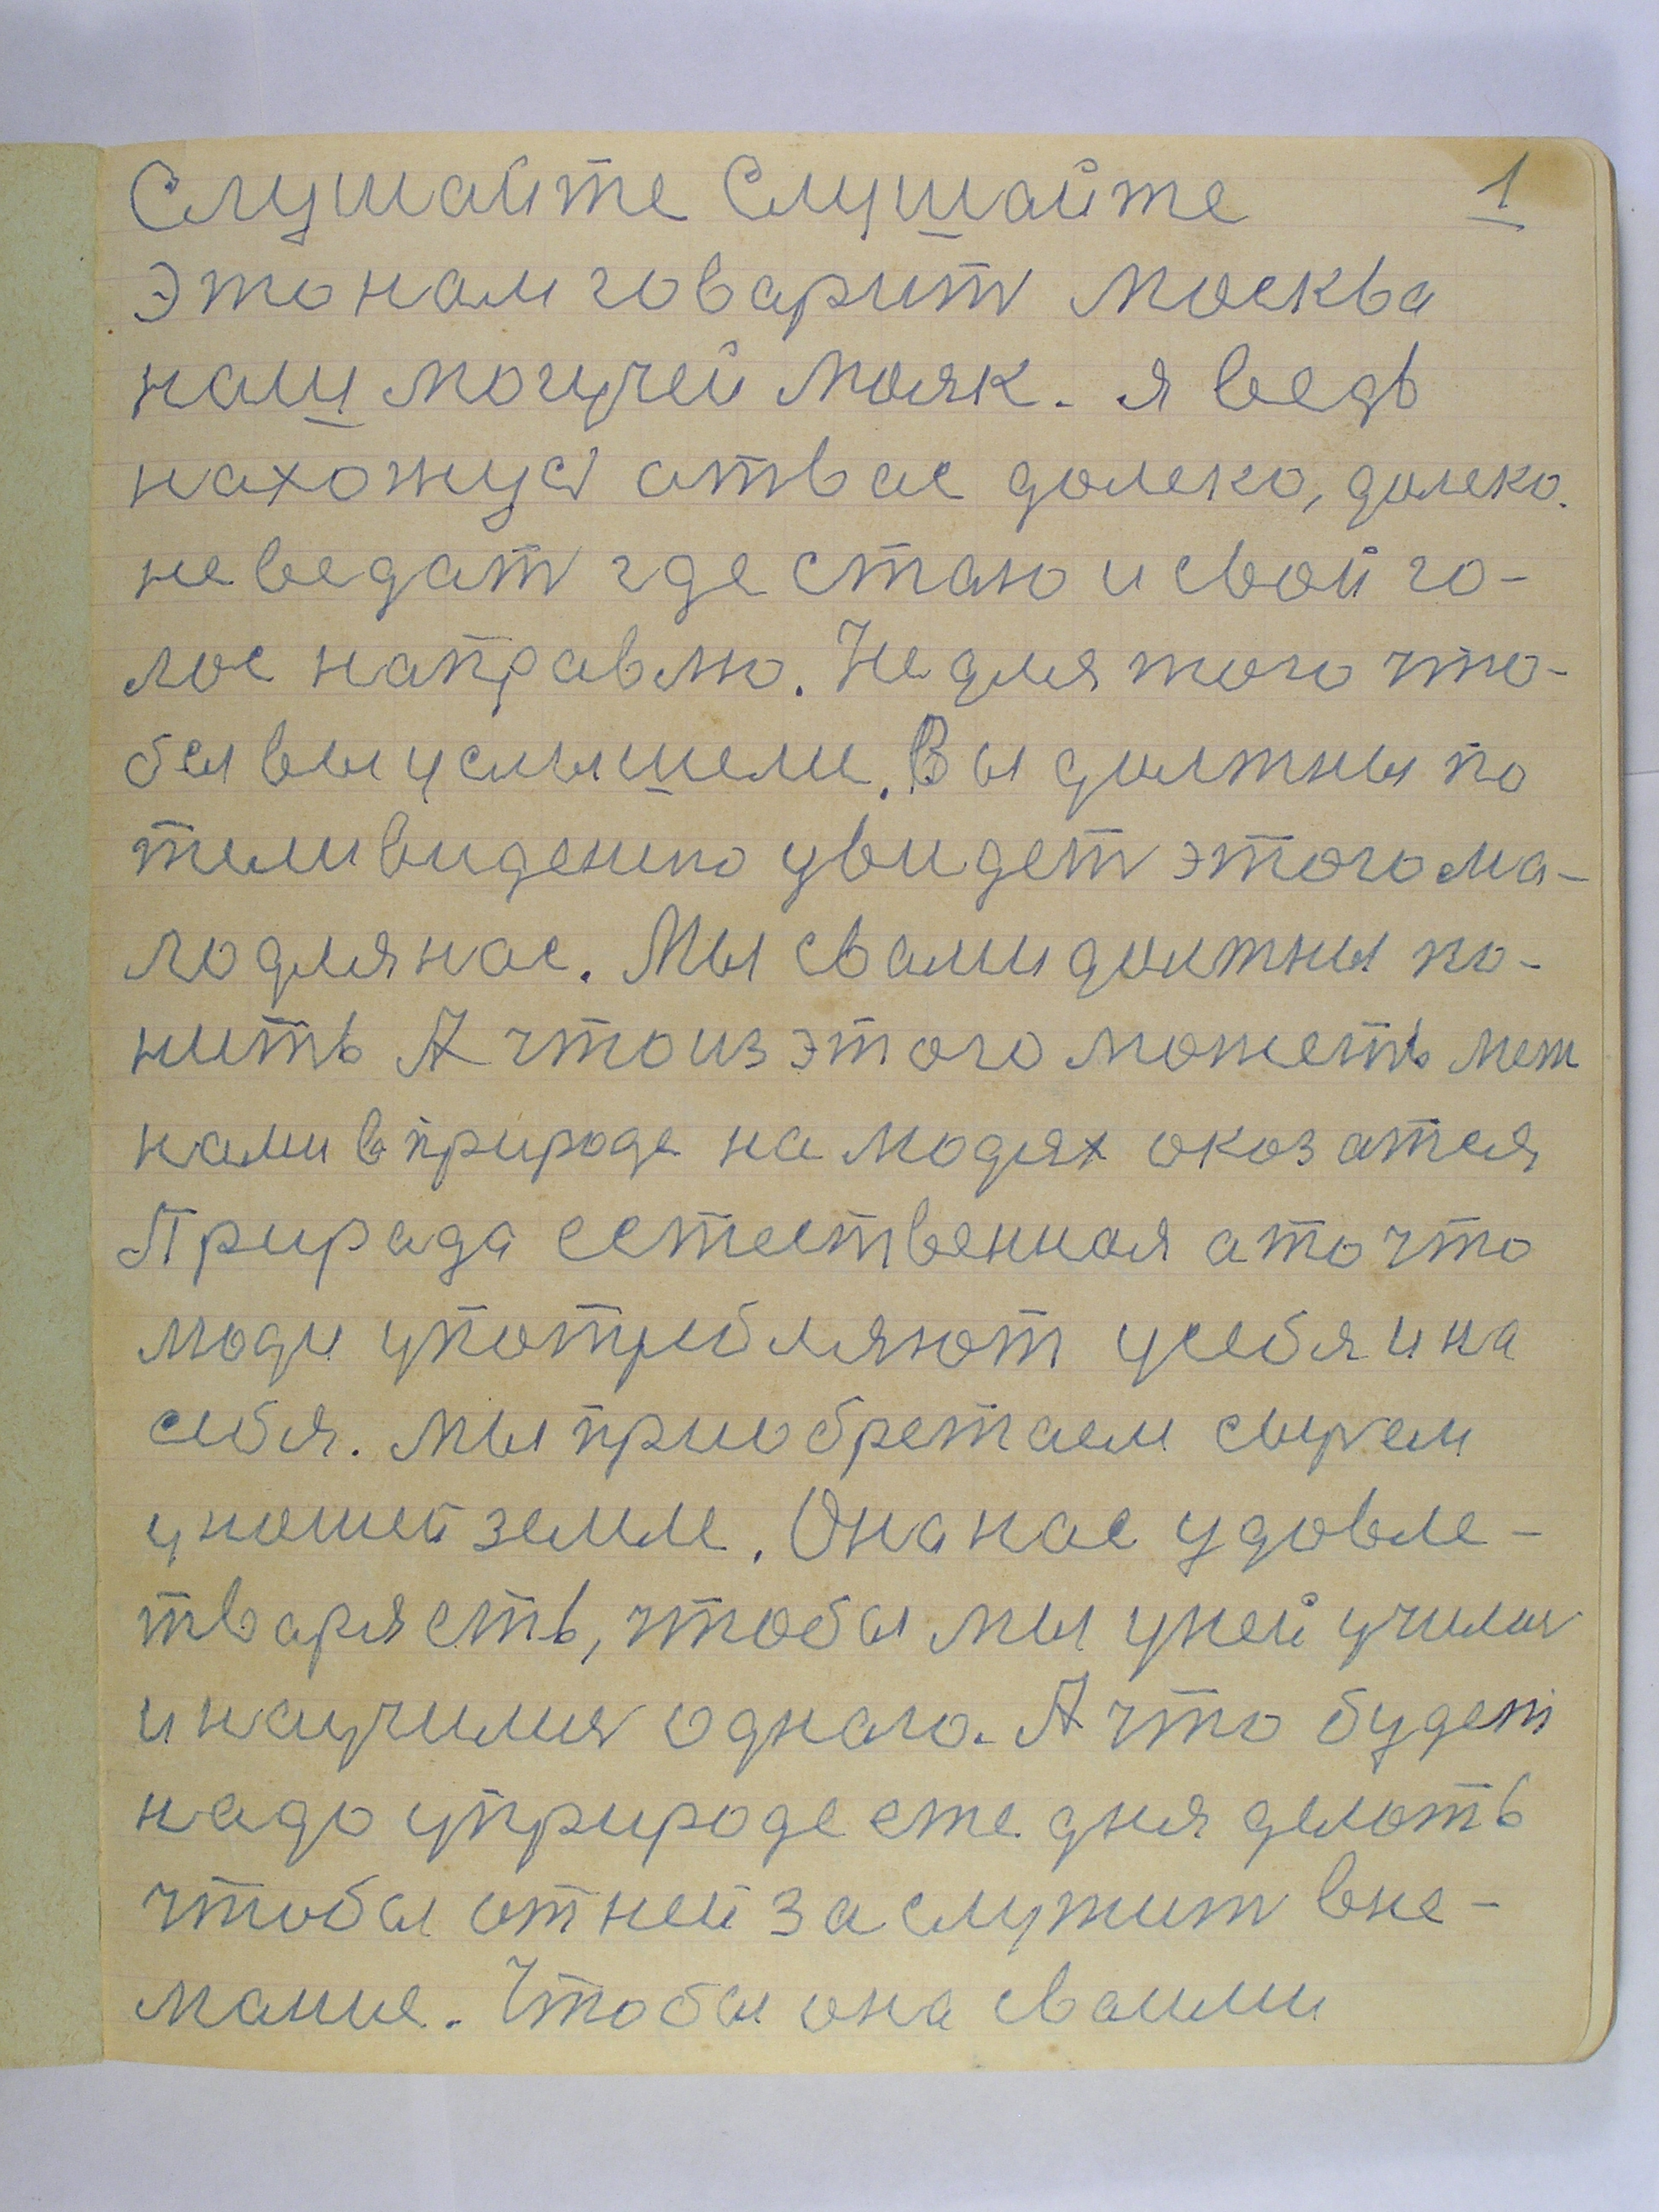 Слушайте Слушайте 1
это нам говарит Москва
наш могучей Маяк. я ведь
нахожус атвас далеко, далеко.
не ведат где стаю и свой го-
лос направлю. Не для того что-
бы вы услышели. Вы должны по
теливидению увидет этого ма-
ло для нас. Мы свами должны по-
нить А что из этого можеть меж
нами в природе на людях оказатся
Природа естественная а то что
люди употребляют у себя и на
себя. Мы приобретаем сырем
у нашей земле. Она нас удовле-
тваряеть, чтобы мы у ней училис
и научилис однаго. А что будет
надо у природе еже дня делать
чтобы от ней заслужит вне-
мание. Чтобы она сваими